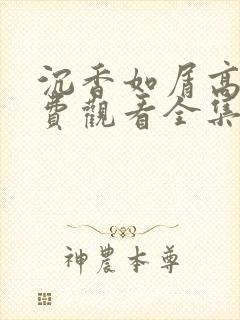 沉香如屑高
費觀看全集
神農本尊